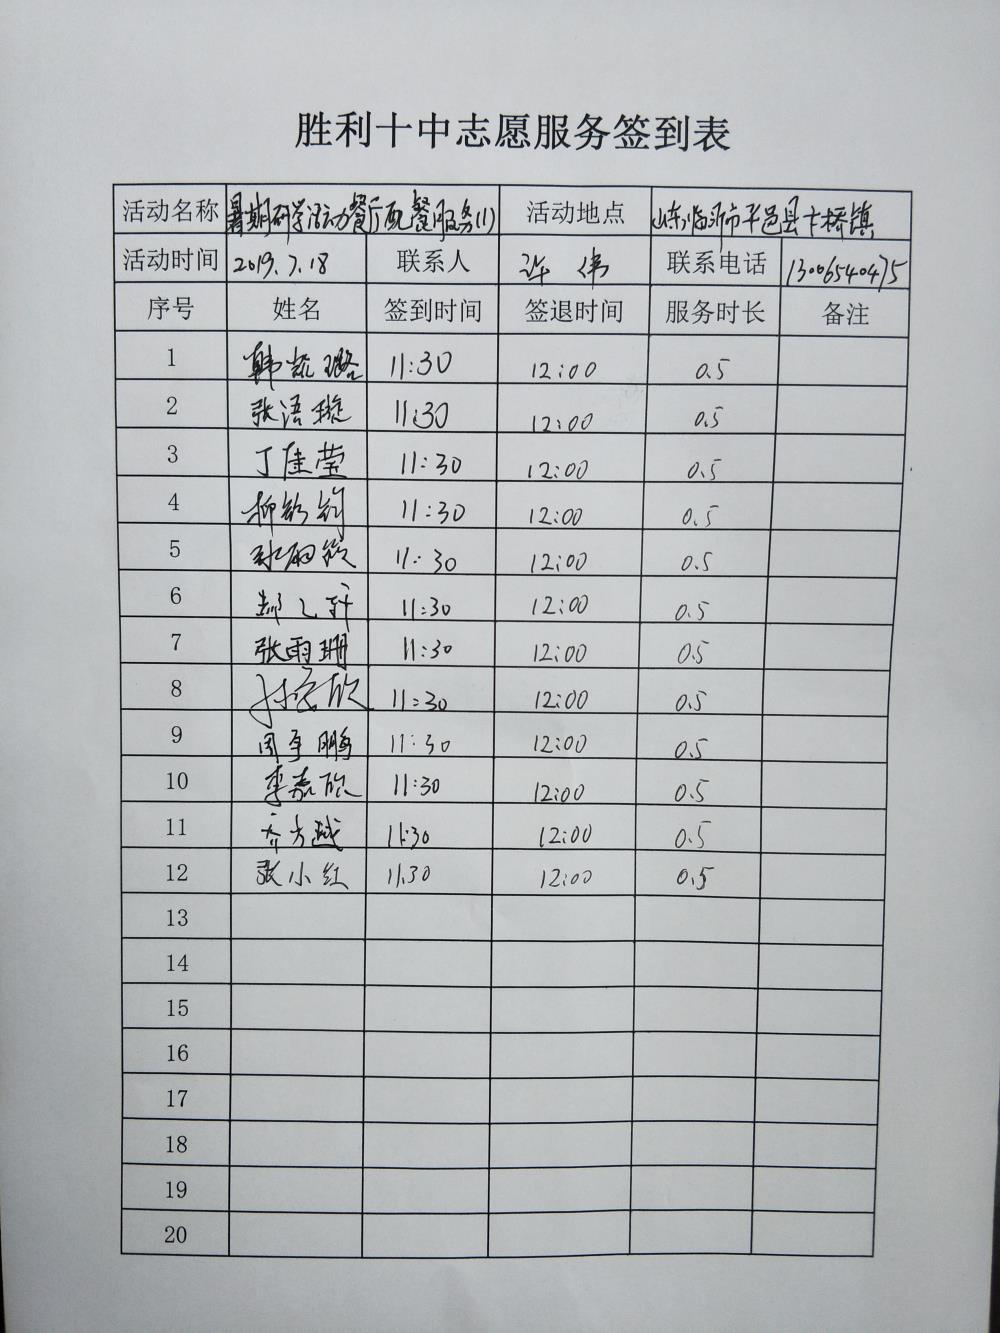 胜利十中志愿服务签到表
活动名称 暑期研学活动餐厅配餐服务(1) 活动地点 山东临沂市平邑县卞桥镇
活动时间 2019.7.18 联系人 许伟 联系电话 13006540475
序号 姓名 签到时间 签退时间 服务时长 备注
1 韩凯璐 11:30 12:00 0.5
2 张语璇 11:30 12:00 0.5
3 丁佳莹 11:30 12:00 0.5
4 柳 11:30 12:00 0.5
5 11:30 12:00 0.5
6 郝乙轩 11:30 12:00 0.5
7 张雨珊 11:30 12:00 0.5
8 11:30 12:00 0.5
9 周宇鹏 11:30 12:00 0.5
10 李嘉欣 11:30 12:00 0.5
11 乔方越 11:30 12:00 0.5
12 张小红 11.30 12:00 0.5
13
14
15
16
17
18
19
20